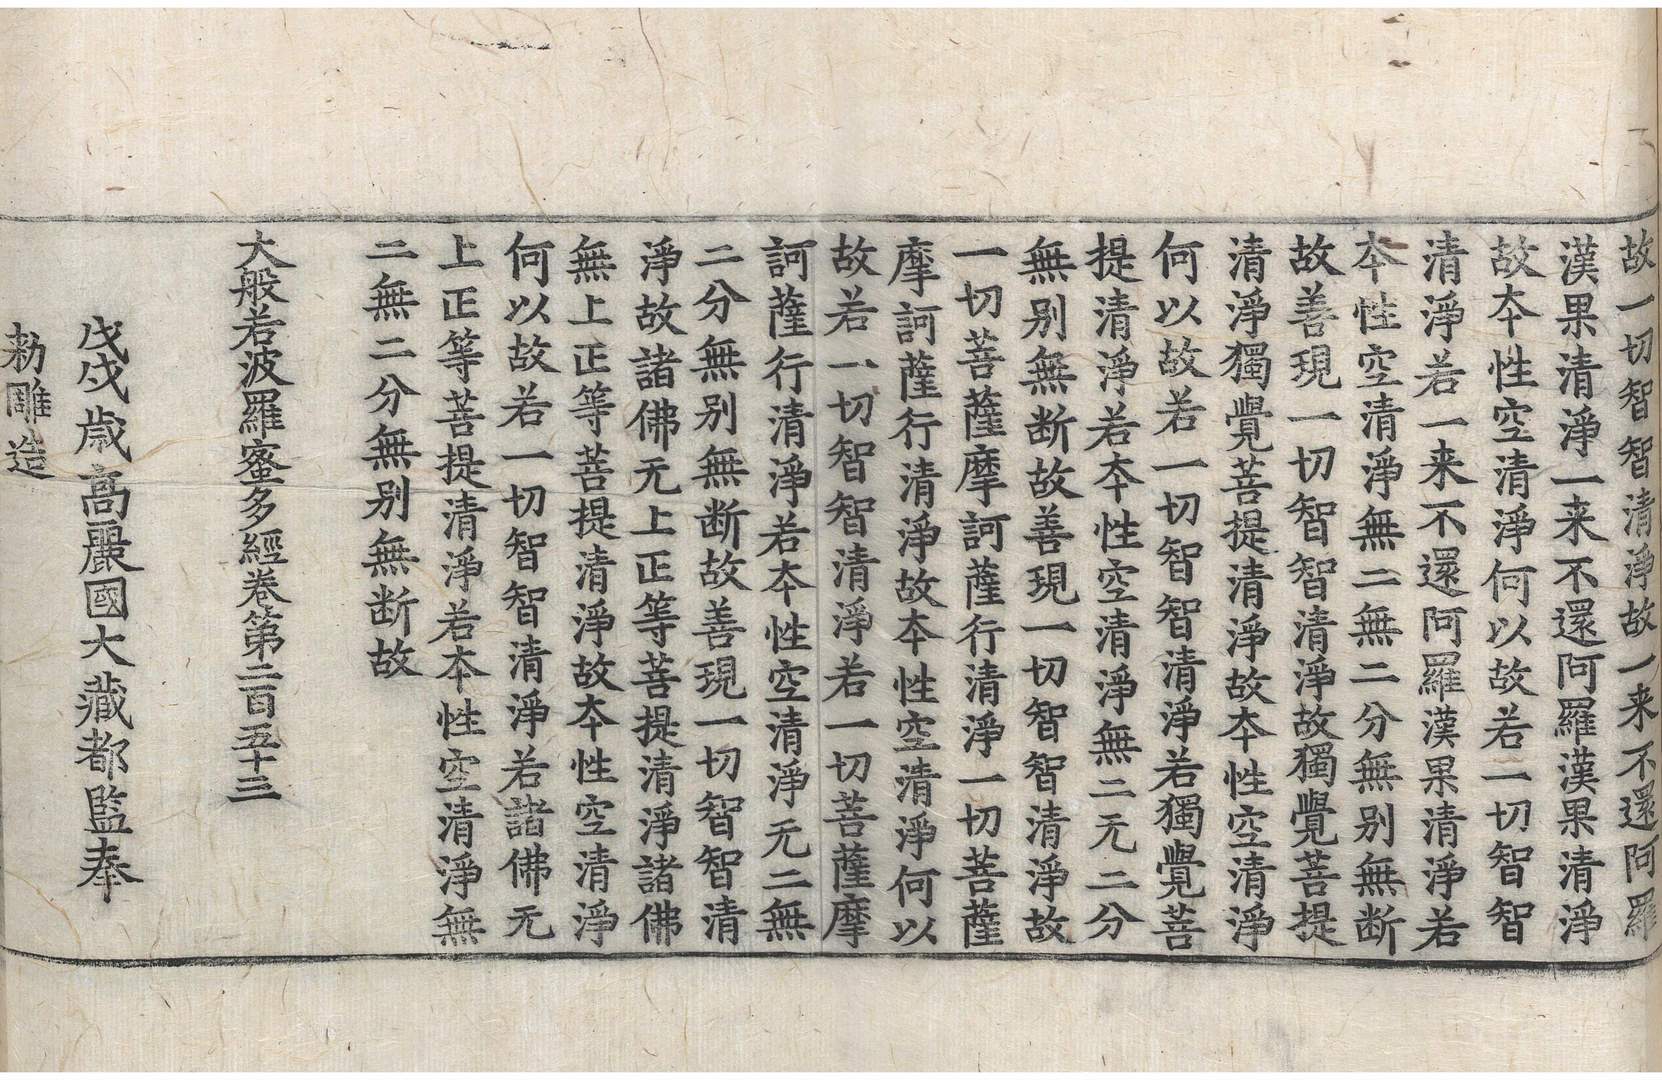 故一切智智清淨故一来不還阿羅
漢果清淨一来不還阿羅漢果清淨
故夲性空清淨何以故若一切智智
清淨若一来不還阿羅漢果清淨若
夲性空清淨無二無二分無別無断
故善現一切智智清淨故獨覺菩提
清淨獨覺菩提清淨故夲性空清淨
何以故若一切智智清淨若獨覺菩
提清淨若夲性空清淨無二无二分
無別無断故善現一切智智清淨故
一切菩薩摩訶薩行清淨一切菩薩
摩訶薩行清淨故夲性空清淨何以
故若一切智智清淨若一切菩薩摩
訶薩行清淨若夲性空清淨无二無
二分無別無断故善現一切智智清
淨故諸佛无上正等菩提清淨諸佛
無上正等菩提清淨故夲性空清淨
何以故若一切智智清淨若諸佛无
上正等菩提清淨若夲性空清淨無
二無二分無別無断故
大般若波羅蜜多經卷第二百五十三
戊戌歲高麗國大藏都監奉
勑雕造